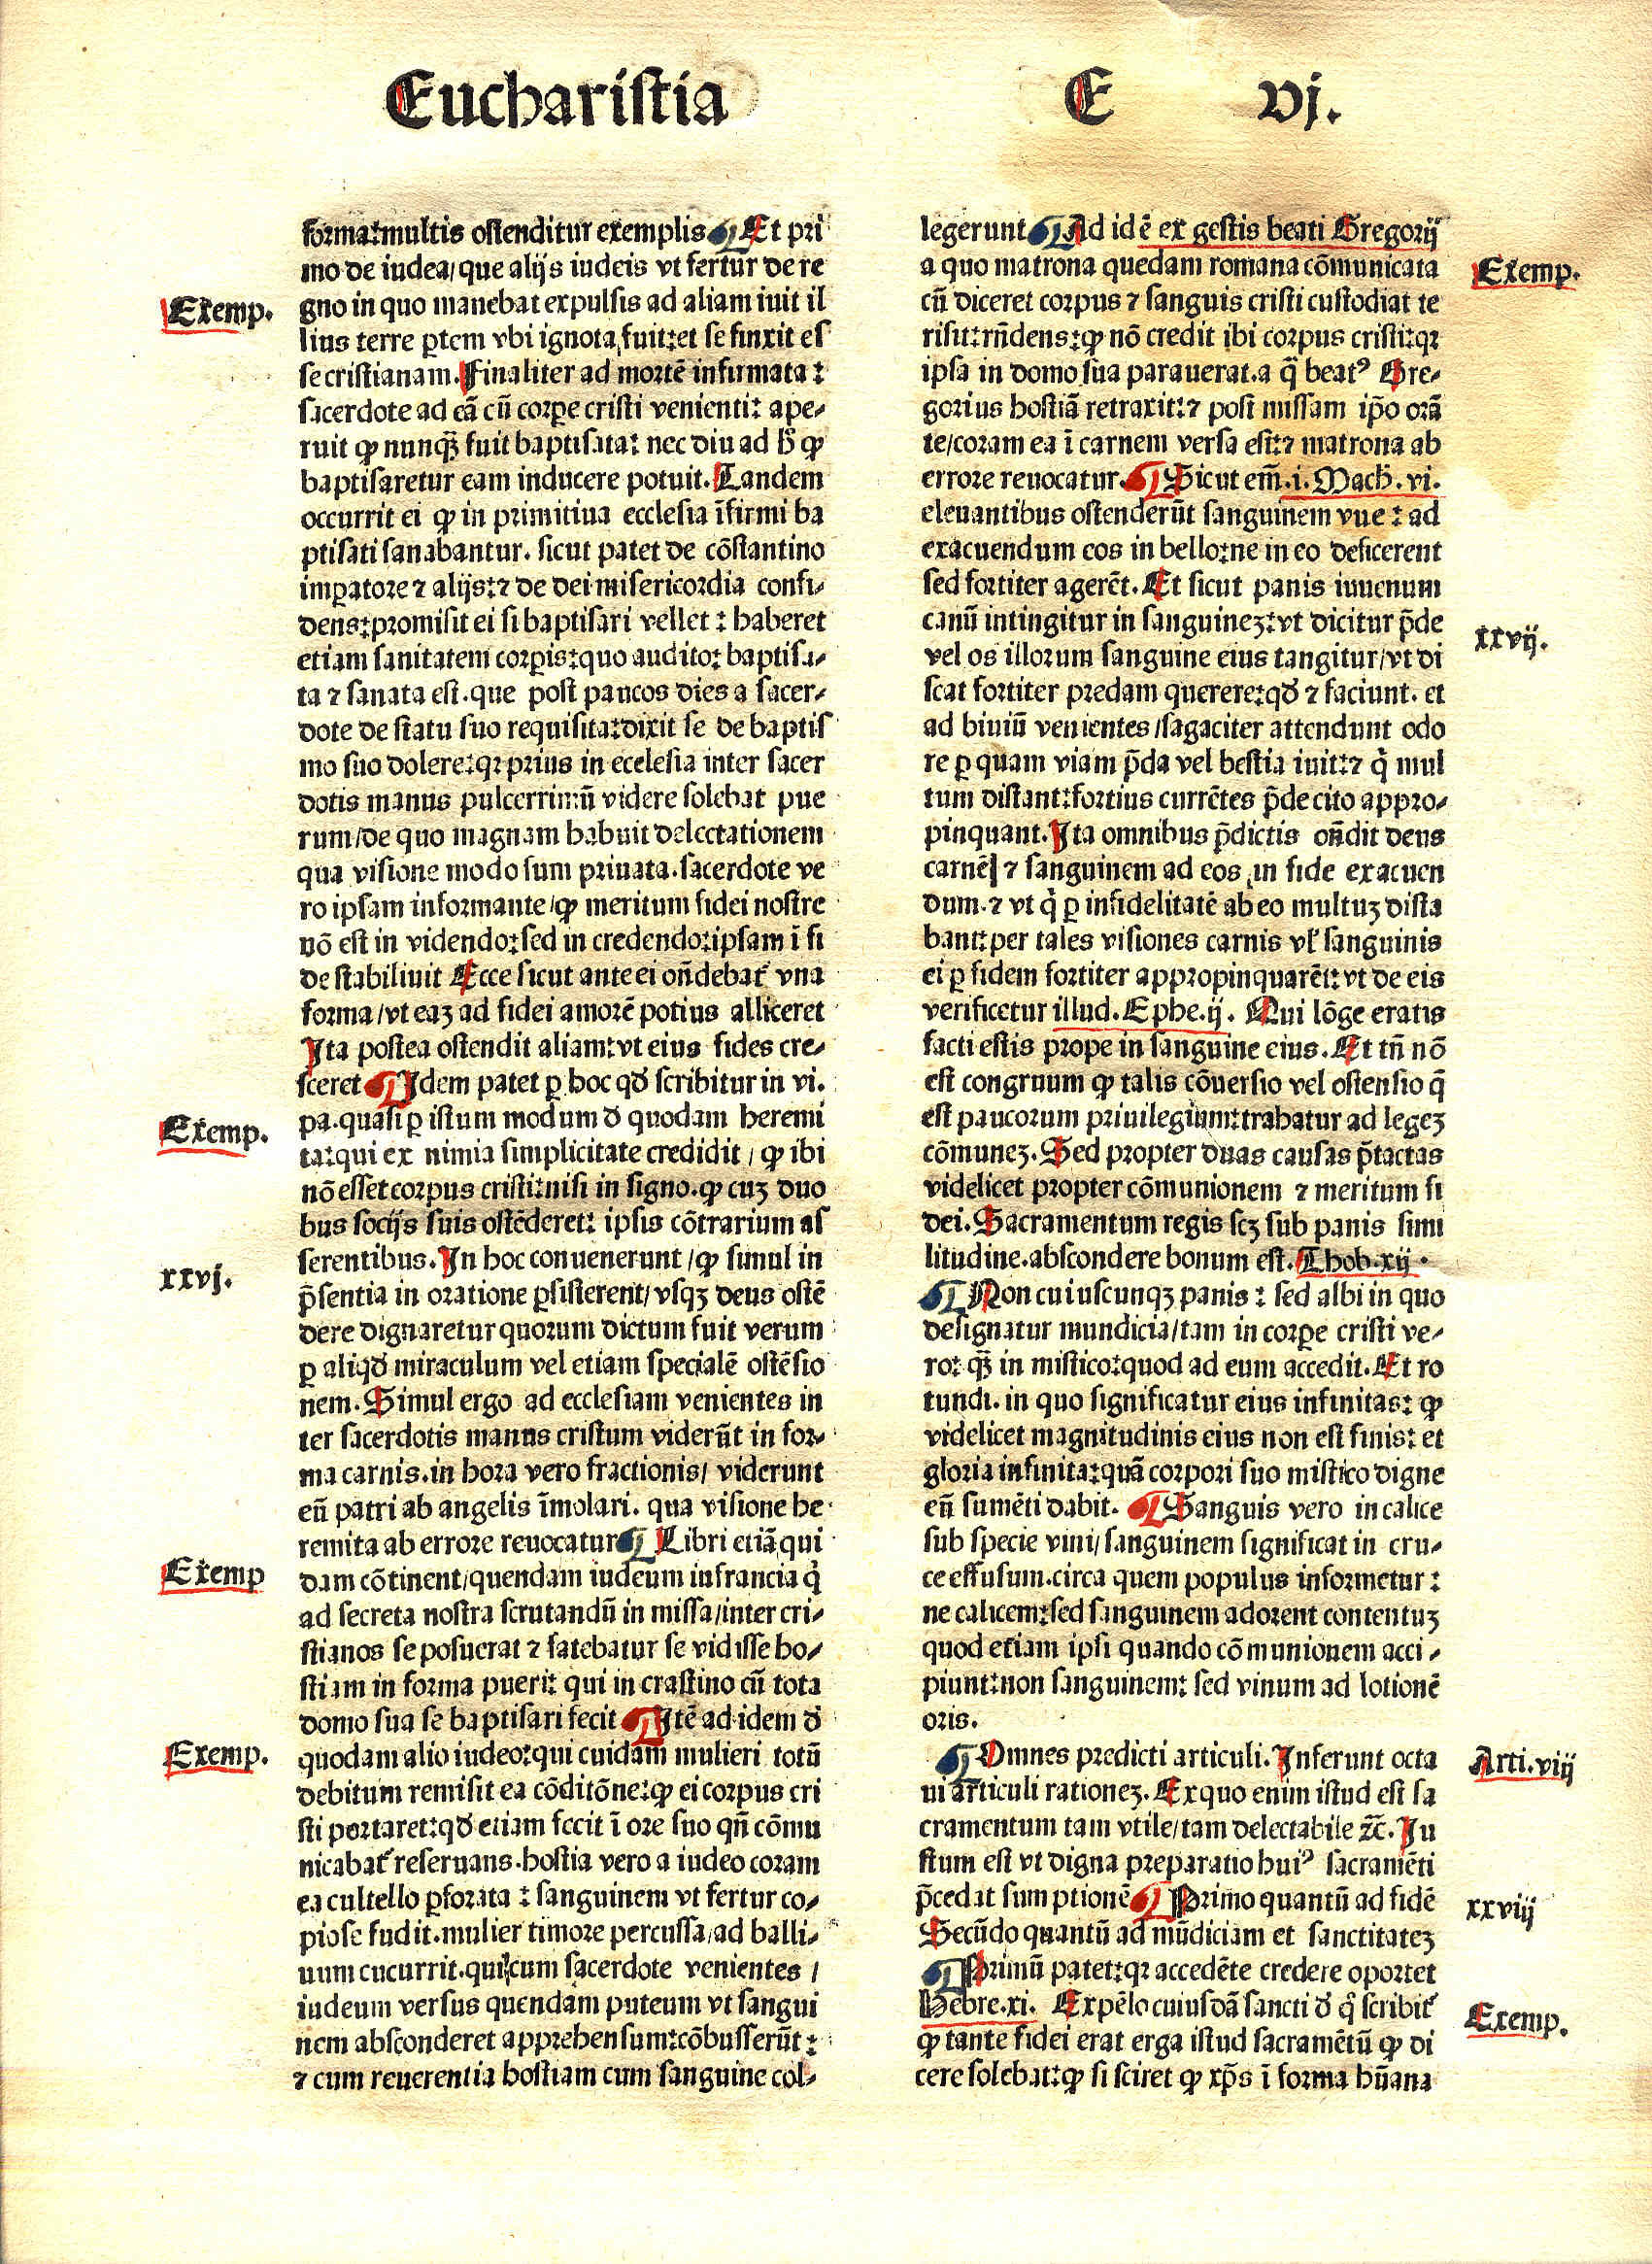 Eucharistia
E vj.
forma: multis ostenditur exemplis ¶ Et pri
mo de iudea/ que alijs iudeis vt fertur de re
Exemp.
gno in quo manebat expulsis ad aliam iuit il
lius terre ꝑtem vbi ignota fuit: et se finxit es
se cristianam. Finaliter ad mortē infirmata:
sacerdote ad eā cū corꝑe cristi venienti: ape-
ruit ꝙ nunqꝫ fuit baptisata: nec diu ad hͦ ꝙ
baptisaretur eam inducere potuit. Tandem
occurrit ei ꝙ in primitiua ecclesia īfirmi ba
ptisati sanabantur. sicut patet de cōstantino
imꝑatore ⁊ alijs: ⁊ de dei misericordia confi-
dens: promisit ei si baptisari vellet: haberet
etiam sanitatem corꝑis: quo audito: baptisa-
ta ⁊ sanata est. que post paucos dies a sacer-
dote de statu suo requisita: dixit se de baptis
mo suo dolere: qꝛ prius in ecelesia inter sacer
dotis manus pulcerrimū videre solebat pue
rum/ de quo magnam habuit delectationem
qua visione modo sum priuata. sacerdote ve
ro ipsam informante/ ꝙ meritum fidei nostre
nō est in videndo: sed in credendo: ipsam ī fi
de stabiliuit Ecce sicut ante ei oñdebat᷑ vna
forma/ vt eaꝫ ad fidei amorē potius alliceret
Ita postea ostendit aliam: vt eius fides cre-
sceret ¶ Idem patet ꝑ hoc qđ scribitur in vi.
Exemp.
pa. quasi ꝑ istum modum đ quodam heremi
ta: qui ex nimia simplicitate credidit/ ꝙ ibi
nō esset corpus cristi: nisi in signo. ꝙ cuꝫ duo
bus socijs suis ostēderet: ipsis cōtrarium as
serentibus. In hoc conuenerunt/ ꝙ simul in
xxvj.
p̄sentia in oratione ꝑsisterent/ vsqꝫ deus ostē
dere dignaretur quorum dictum fuit verum
ꝑ aliqđ miraculum vel etiam specialē ostēsio
nem. Simul ergo ad ecclesiam venientes in
ter sacerdotis manus cristum viderūt in for-
ma carnis. in hora vero fractionis/ viderunt
eū patri ab angelis īmolari. qua visione he-
remita ab errore reuocatur ¶ Libri etiā qui
Exemp
dam cōtinent/ quendam iudeum in francia qͥ
ad secreta nostra scrutandū in missa/ inter cri-
stianos se posuerat ⁊ fatebatur se vidisse ho-
stiam in forma pueri: qui in crastino cū tota
domo sua se baptisari fecit ¶ Itē ad idem đ
Exemp.
quodam alio iudeo: qui cuidam mulieri totū
debitum remisit ea cōditōne: ꝙ ei corpus cri
sti portaret: qđ etiam fecit ī ore suo qn̄ cōmu
nicabat᷑ reseruans. hostia vero a iudeo coram
ea cultello ꝑforata: sanguinem vt fertur co-
piose fudit. mulier timore percussa/ ad balli-
uum cucurrit. qui cum sacerdote venientes /
iudeum versus quendam puteum vt sangui
nem absconderet apprehensum: cōbusserūt:
⁊ cum reuerentia hostiam cum sanguine col-
legerunt ¶ Ad idē ex gestis beati Gregorij
a quo matrona quedam romana cōmunicata
Exemp.
cū diceret corpus ⁊ sanguis cristi custodiat te
risit: rn̄dens: ꝙ nō credit ibi corpus cristi: qꝛ
ipsa in domo sua parauerat. a q̄ beatꝰ Gre-
gorius hostiā retraxit: ⁊ post missam ip̄o orā
te/ coram ea ī carnem versa est: ⁊ matrona ab
errore reuocatur. ¶ Sicut em̄ .i. Mach. vi.
eleuantibus ostenderūt sanguinem vue: ad
exacuendum eos in bello: ne in eo deficerent
sed fortiter agerēt. Et sicut panis iuuenum
canū intingitur in sanguineꝫ: vt dicitur p̄de
xxvij.
vel os illorum sanguine eius tangitur/ vt di
scat fortiter predam querere: qđ ⁊ faciunt. et
ad biuiū venientes/ sagaciter attendunt odo
re ꝑ quam viam p̄da vel bestia iuit: ⁊ qͥ mul
tum distant: fortius currētes p̄de cito appro-
pinquant. Ita omnibus p̄dictis on̄dit deus
carnē ⁊ sanguinem ad eos in fide exacuen
dum. ⁊ vt qͥ ꝑ infidelitatē ab eo multuꝫ dista
bant: per tales visiones carnis vl̓ sanguinis
ei ꝑ fidem fortiter appropinquarēt: vt de eis
verificetur illud. Ephe. ij. Qui lōge eratis
facti estis prope in sanguine eius. Et tn̄ nō
est congruum ꝙ talis cōuersio vel ostensio q̄
est paucorum priuilegium: trahatur ad legeꝫ
cōmuneꝫ. Sed propter duas causas p̄tactas
videlicet propter cōmunionem ⁊ meritum fi
dei. Sacramentum regis scꝫ sub panis simi
litudine. abscondere bonum est. Thob. xij.
¶ Non cuiuscunqꝫ panis: sed albi in quo
designatur mundicia/ tam in corꝑe cristi ve-
ro: qꝫ in mistico: quod ad eum accedit. Et ro
tundi. in quo significatur eius infinitas: ꝙ
videlicet magnitudinis eius non est finis: et
gloria infinita: quā corpori suo mistico digne
eū sumēti dabit. ¶ Sanguis vero in calice
sub specie vini/ sanguinem significat in cru-
ce effusum. circa quem populus informetur:
ne calicem: sed sanguinem adorent contentuꝫ
quod etiam ipsi quando cōmunionem acci-
piunt: non sanguinem: sed vinum ad lotionē
oris.
¶ Omnes predicti articuli. Inferunt octa
Arti. viij
ui articuli rationeꝫ. Ex quo enim istud est sa
cramentum tam vtile/ tam delectabile ⁊c̄. Iu
stum est vt digna preparatio huiꝰ sacramēti
p̄cedat sumptionē ¶ Primo quantū ad fidē
xxviij
Secūdo quantū ad mūdiciam et sanctitateꝫ
¶ Primū patet: qꝛ accedēte credere oportet
Hebre. xi. Exp̄elo cuiusdā sancti đ qͦ scribit᷑
Exemp.
ꝙ tante fidei erat erga istud sacramētū ꝙ di
cere solebat: ꝙ si sciret ꝙ xp̄s ī forma hūana